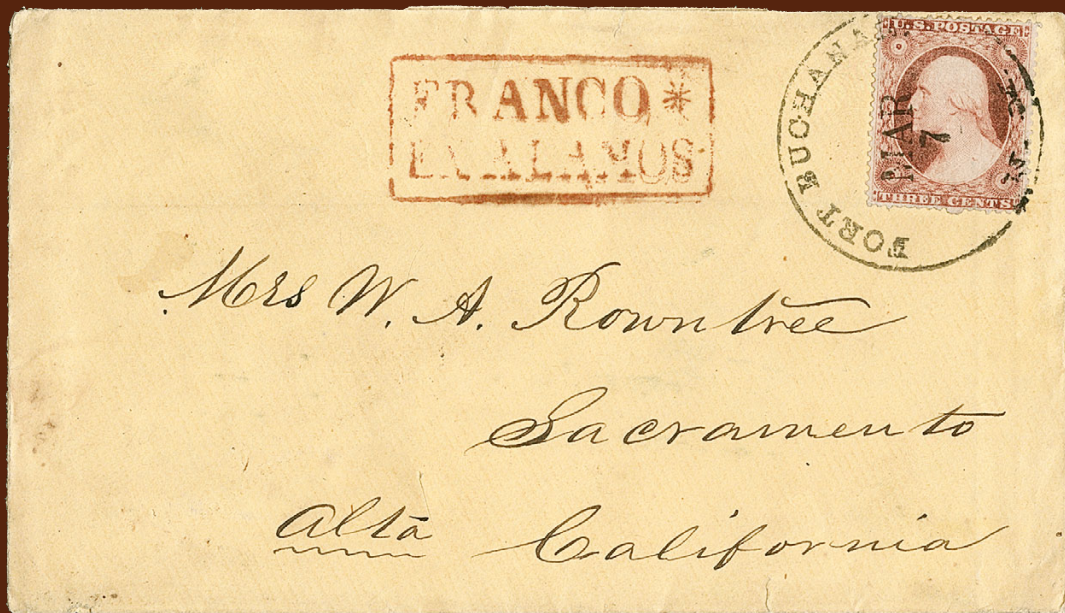 FRANCO *
EN ALAMOS
FORT BUCHANAN N. M.
MAR
7
U.S. POSTAGE
THREE CENTS
Mrs W. A. Rowntree
Sacramento
Alta California